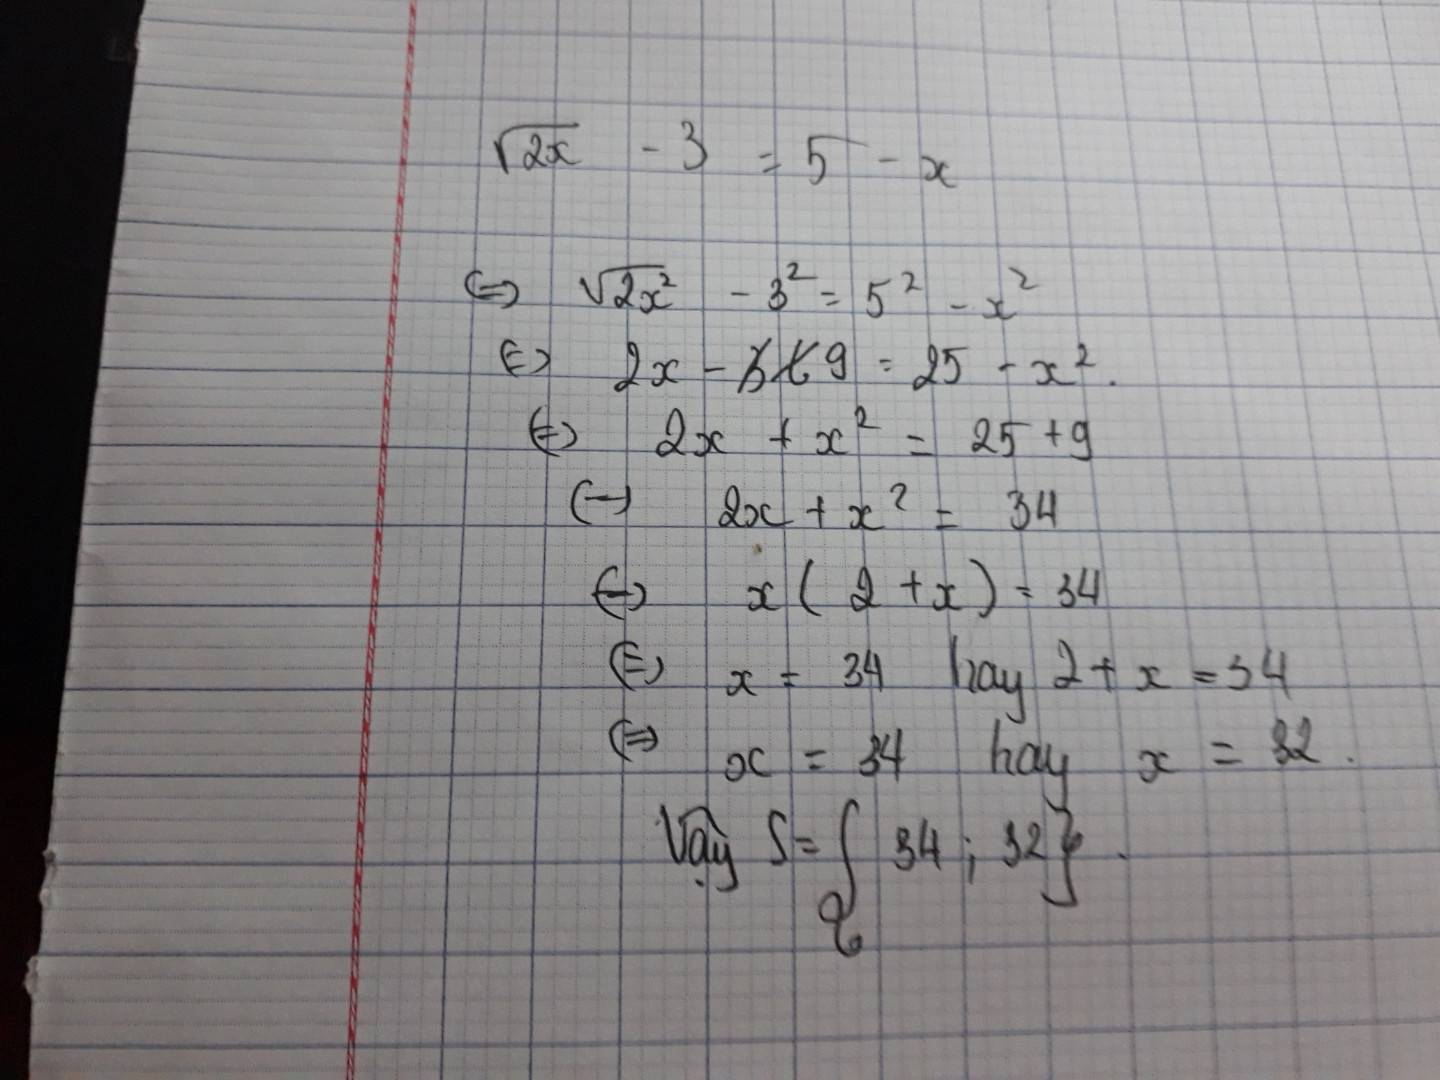 √2x - 3 = 5 - x
⇔ √2x² - 3² = 5² - x²
⇔ 2x - 9 = 25 - x².
⇔ 2x + x² = 25 + 9
⇔ 2x + x² = 34
⇔ x ( 2 + x ) = 34
⇔ x = 34 hay 2 + x = 34
⇔ x = 34 hay x = 32.
Vậy S = { 34 ; 32 }.